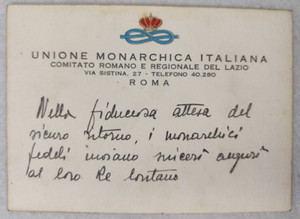 UNIONE MONARCHICA ITALIANA
COMITATO ROMANO E REGIONALE DEL LAZIO
VIA SISTINA, 27 - TELEFONO 40.280
ROMA
Nella fiduciosa attesa del
sicuro ritorno, i monarchici
fedeli inviano sinceri auguri
al loro Re lontano